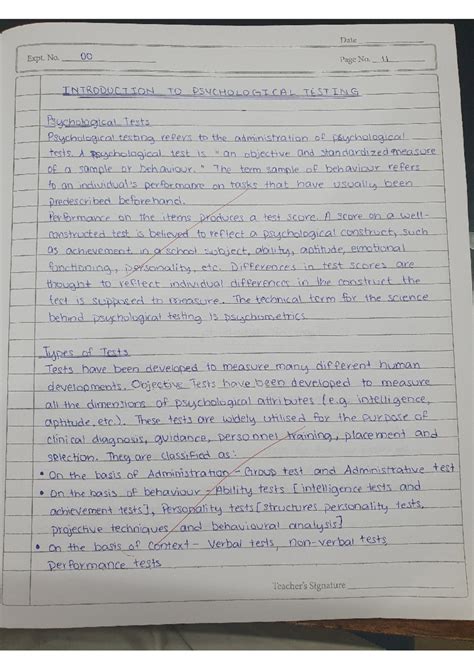 Date
Expt. No. 00
Page No. 11
INTRODUCTION TO PSYCHOLOGICAL TESTING
Psychological Tests
Psychological testing refers to the administration of psychological
tests. A psychological test is "an objective and standardized measure
of a sample or behaviour." The term sample of behaviour refers
to an individual's performance on tasks that have usually been
predescribed beforehand.
Performance on the items produces a test score. A score on a well-
constructed test is believed to reflect a psychological construct, such
as achievement in a school subject, ability, aptitude, emotional
functioning, personality, etc. Differences in test scores are
thought to reflect individual differences in the construct the
test is supposed to measure. The technical term for the science
behind psychological testing is psychometrics.
Types of Tests
Tests have been developed to measure many different human
developments. Objective Tests have been developed to measure
all the dimensions of psychological attributes (e.g. intelligence,
aptitude, etc.). These tests are widely utilised for the purpose of
clinical diagnosis, guidance, personnel training, placement and
selection. They are classified as:
• On the basis of Administration - Group test and Administrative test
• On the basis of behaviour - Ability tests [intelligence tests and
achievement tests], Personality tests [structures personality tests,
projective techniques and behavioural analysis]
• On the basis of Context - Verbal tests, non-verbal tests,
performance tests
Teacher's Signature